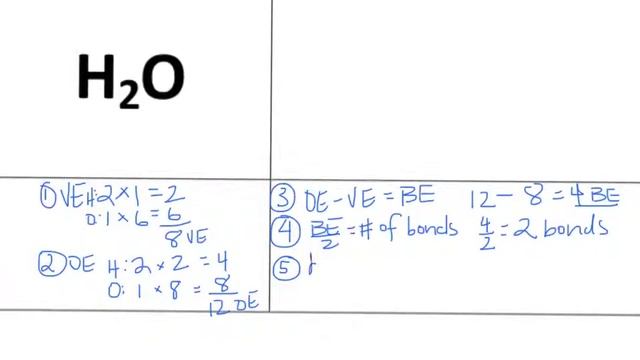 H₂O
① VE H: 2 × 1 = 2
O: 1 × 6 = 6
8 VE
② OE H: 2 × 2 = 4
O: 1 × 8 = 8
12 OE
③ OE - VE = BE 12 - 8 = 4 BE
④ BE/2 = # of bonds 4/2 = 2 bonds
⑤